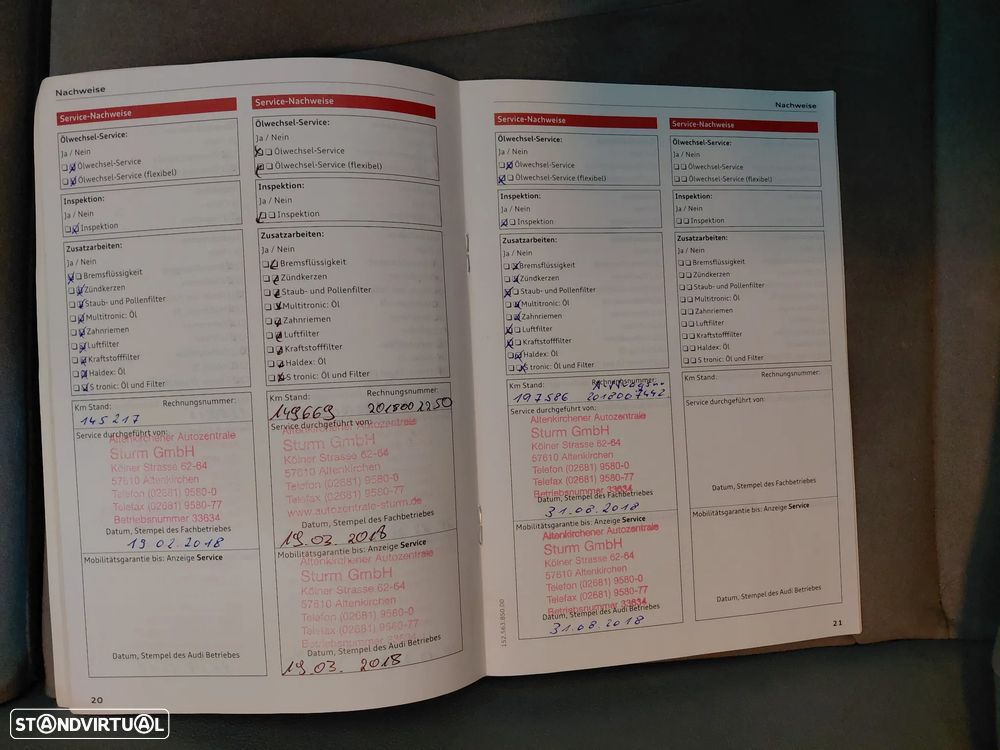 Nachweise
Service-Nachweise
Ölwechsel-Service:
Ja / Nein
Ölwechsel-Service
Ölwechsel-Service (flexibel)
Inspektion:
Ja / Nein
Inspektion
Zusatzarbeiten:
Ja / Nein
Bremsflüssigkeit
Zündkerzen
Staub- und Pollenfilter
Multitronic: Öl
Zahnriemen
Luftfilter
Kraftstofffilter
Haldex: Öl
S tronic: Öl und Filter
Km Stand: Rechnungsnummer:
145217
Service durchgeführt von:
Altenkirchener Autozentrale
Sturm GmbH
Kölner Strasse 62-64
57610 Altenkirchen
Telefon (02681) 9580-0
Telefax (02681) 9580-77
Betriebsnummer 33634
Datum, Stempel des Fachbetriebes
19.02.2018
Mobilitätsgarantie bis: Anzeige Service
Datum, Stempel des Audi Betriebes
20
Service-Nachweise
Ölwechsel-Service:
Ja / Nein
Ölwechsel-Service
Ölwechsel-Service (flexibel)
Inspektion:
Ja / Nein
Inspektion
Zusatzarbeiten:
Ja / Nein
Bremsflüssigkeit
Zündkerzen
Staub- und Pollenfilter
Multitronic: Öl
Zahnriemen
Luftfilter
Kraftstofffilter
Haldex: Öl
S tronic: Öl und Filter
Km Stand: Rechnungsnummer:
149669 2018002250
Service durchgeführt von:
Altenkirchener Autozentrale
Sturm GmbH
Kölner Strasse 62-64
57610 Altenkirchen
Telefon (02681) 9580-0
Telefax (02681) 9580-77
www.autozentrale-sturm.de
Datum, Stempel des Fachbetriebes
19.03.2018
Mobilitätsgarantie bis: Anzeige Service
Altenkirchener Autozentrale
Sturm GmbH
Kölner Strasse 62-64
57610 Altenkirchen
Telefon (02681) 9580-0
Telefax (02681) 9580-77
Datum, Stempel des Audi Betriebes
19.03.2018
Nachweise
Service-Nachweise
Ölwechsel-Service:
Ja / Nein
Ölwechsel-Service
Ölwechsel-Service (flexibel)
Inspektion:
Ja / Nein
Inspektion
Zusatzarbeiten:
Ja / Nein
Bremsflüssigkeit
Zündkerzen
Staub- und Pollenfilter
Multitronic: Öl
Zahnriemen
Luftfilter
Kraftstofffilter
Haldex: Öl
S tronic: Öl und Filter
Km Stand: Rechnungsnummer:
197586 2018007442
Service durchgeführt von:
Altenkirchener Autozentrale
Sturm GmbH
Kölner Strasse 62-64
57610 Altenkirchen
Telefon (02681) 9580-0
Telefax (02681) 9580-77
Betriebsnummer 33634
Datum, Stempel des Fachbetriebes
31.08.2018
Mobilitätsgarantie bis: Anzeige Service
Altenkirchener Autozentrale
Sturm GmbH
Kölner Strasse 62-64
57610 Altenkirchen
Telefon (02681) 9580-0
Telefax (02681) 9580-77
Betriebsnummer 33634
Datum, Stempel des Audi Betriebes
31.08.2018
152.563.850.00
Service-Nachweise
Ölwechsel-Service:
Ja / Nein
Ölwechsel-Service
Ölwechsel-Service (flexibel)
Inspektion:
Ja / Nein
Inspektion
Zusatzarbeiten:
Ja / Nein
Bremsflüssigkeit
Zündkerzen
Staub- und Pollenfilter
Multitronic: Öl
Zahnriemen
Luftfilter
Kraftstofffilter
Haldex: Öl
S tronic: Öl und Filter
Km Stand: Rechnungsnummer:
Service durchgeführt von:
Datum, Stempel des Fachbetriebes
Mobilitätsgarantie bis: Anzeige Service
Datum, Stempel des Audi Betriebes
21
STANDVIRTUAL